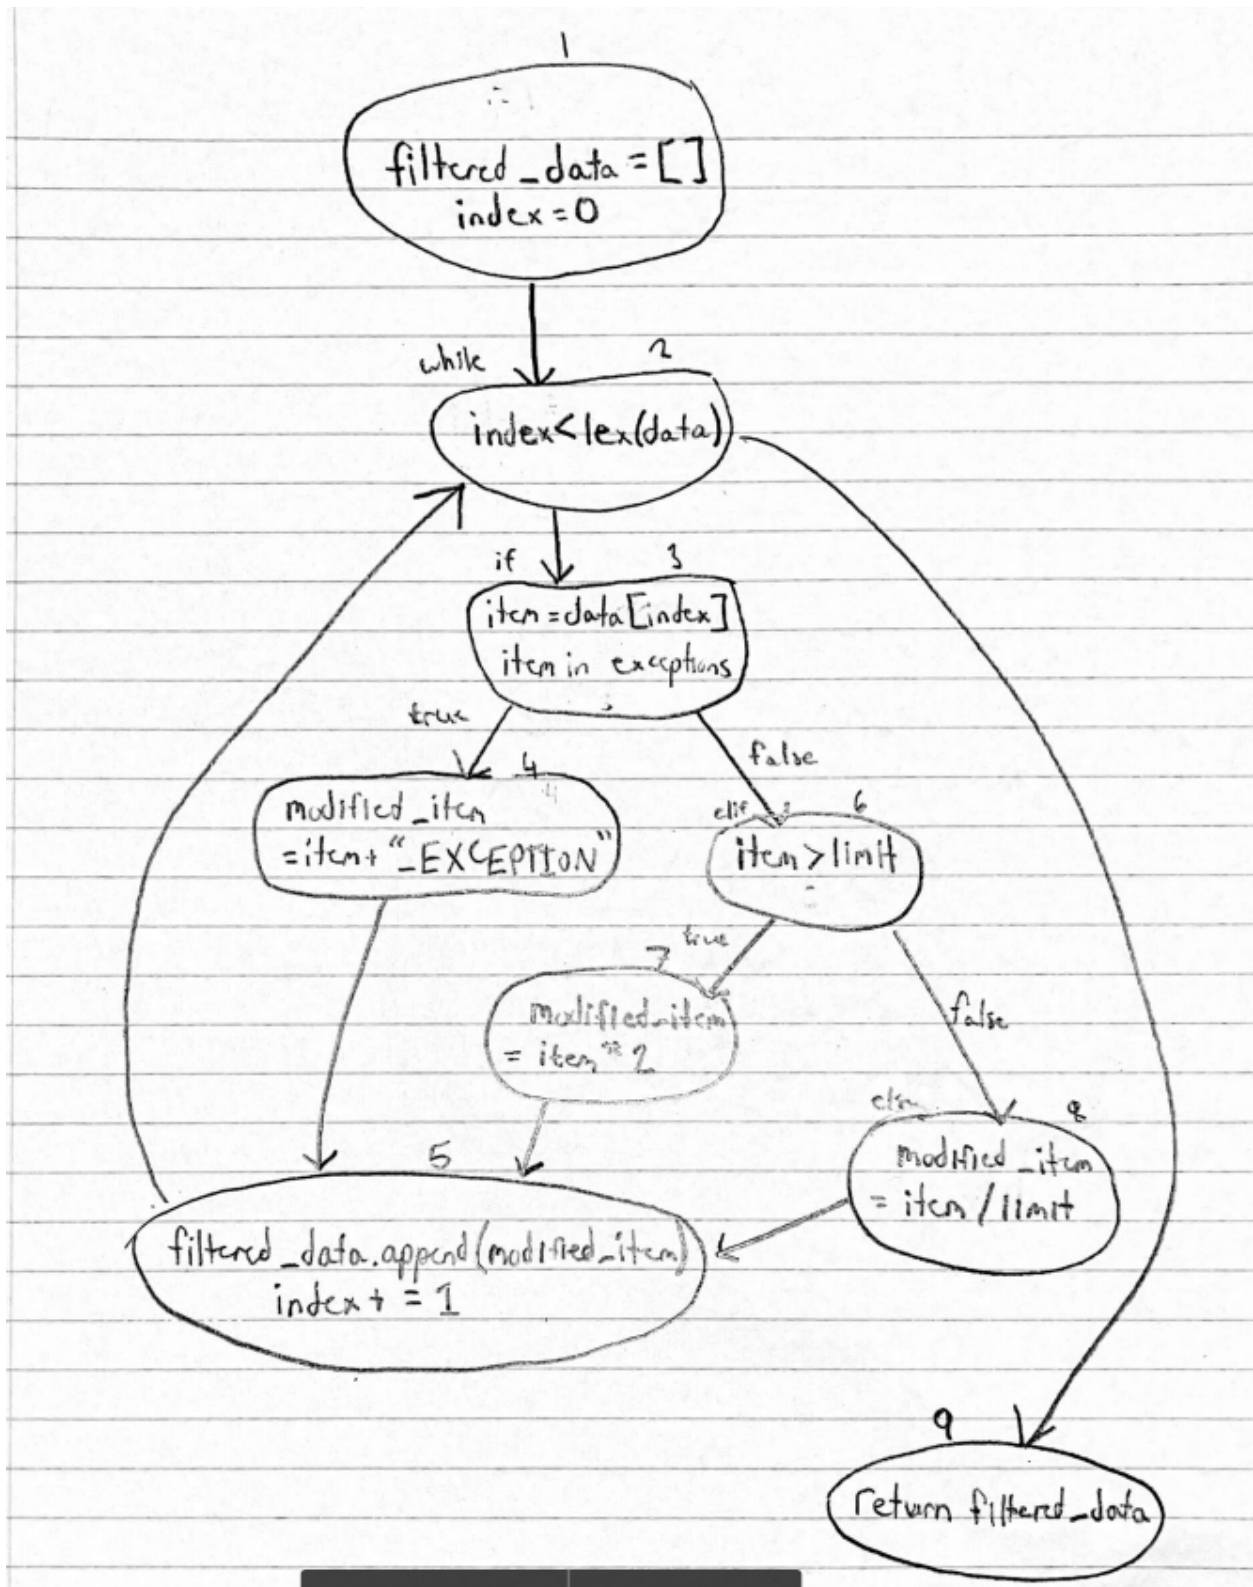 1
filtered_data = []
index = 0
while
2
index < lex(data)
if
3
item = data[index]
item in exceptions
true
false
4
modified_item
= item + "_EXCEPTION"
elif
6
item > limit
true
7
false
modified_item
= item * 2
else
8
modified_item
= item / limit
5
filtered_data.append(modified_item)
index + = 1
9
return filtered_data